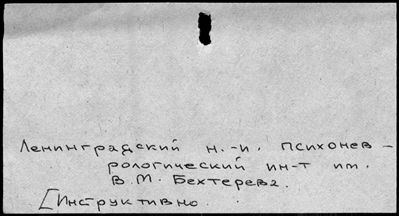 Ленинградский н.-и. психонев-
рологический ин-т им.
В.М. Бехтерева.
[Инструктивно